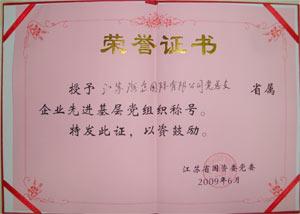 荣誉证书
授予 江苏 国际 有限公司党总支 省属
企业先进基层党组织称号。
特发此证，以资鼓励。
江苏省国资委党委
2009年6月